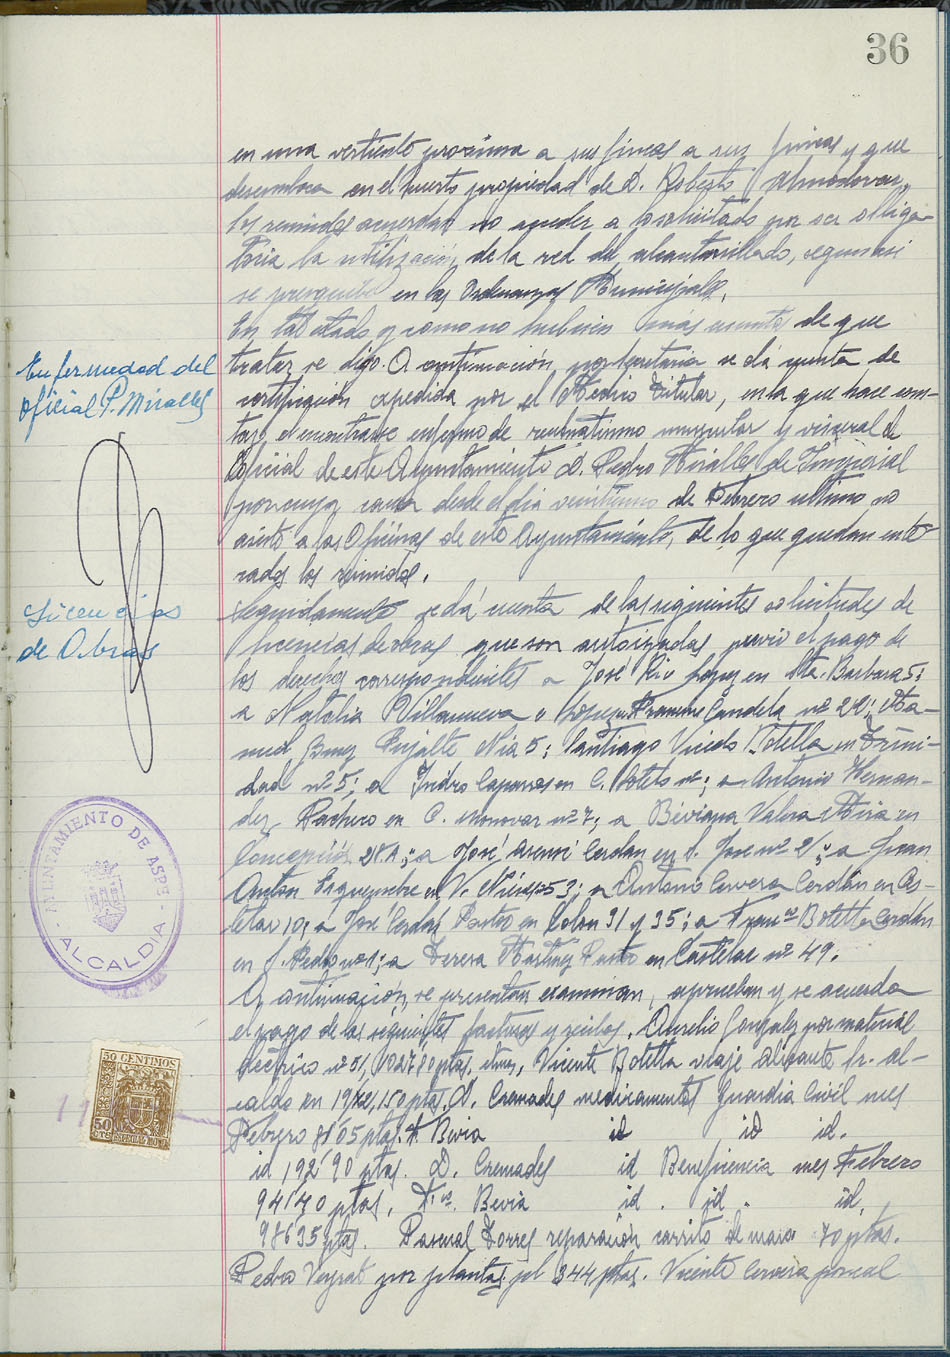 36
en una vertiente proxima a sus fincas a sus fincas y que
desemboca en el huerto propiedad de D. Roberto Almodovar,
los reunidos acuerdan no acceder a lo solicitado por ser obliga-
toria la utilización de la red del alcantarillado, segun asi
se en las Ordenanzas Municipales.
En tal estado y como no hubiera más asuntos de que
tratar se digo. A continuación, por Secretaria se dá cuenta de
certificación expedida por el Medico Titular, en la que hace cons-
tar, el encontrarse enfermo de reumatismo muscular y visceral el
Oficial de este Ayuntamiento D. Pedro Miralles de Imperial
por cuya causa desde el dia veintiuno de Febrero ultimo no
asiste a las Oficinas de este Ayuntamiento, de lo que quedan ente-
rados los reunidos.
Seguidamente se dá cuenta de las siguientes solicitudes de
licencias de obras que son autorizadas previo el pago de
los derechos correspondientes a José Rico Lopez en Sta. Barbara 5;
a Natalia Villanueva Lopez en Francisco Candela nº 22; Ma-
nuel Pujalte Nia 5; Santiago Vicedo Botella en Trini-
dad nº 5; a Isidro Caparros en C. ; a Antonio Hernan-
dez Pachero en C. Monovar nº 7; a Beviana Valera Mira en
Concepción, ; a José Asensi Cerdan en S. Jose nº 2; a Juan
Anton Esquembre en V. Nieves 53; a Antonio Cervera Cerdán en Cas-
telar 10; a José Cerdan Pastor en Colon 31 y 35; a Franco Botella Cerdán
en S. Pedro nº 1; a Teresa Martinez Pastor en Castelar nº 49.
A continuación, se presentan, examinan, aprueban y se acuerda
el pago de las siguientes facturas y recibos. Aurelio Gonzalez por material
electrico ptas. Vicente Botella viaje alicante Sr. al-
calde en , 150 ptas. D. Cremades medicamentos Guardia Civil mes
Febrero 88'05 ptas. F. Bevia id id id.
id 192'90 ptas. D. Cremades id Beneficencia mes Febrero
94'40 ptas, Fco. Bevia id. id. id,
ptas. Pascual Torres reparación carrito de mano 70 ptas.
Pedro Veyrat por plantas 344 ptas. Vicente Cervera
Enfermedad del
oficial P. Miralles
Licencias
de Obras
AYUNTAMIENTO DE ASPE
ALCALDIA
50 CENTIMOS
50 CTS